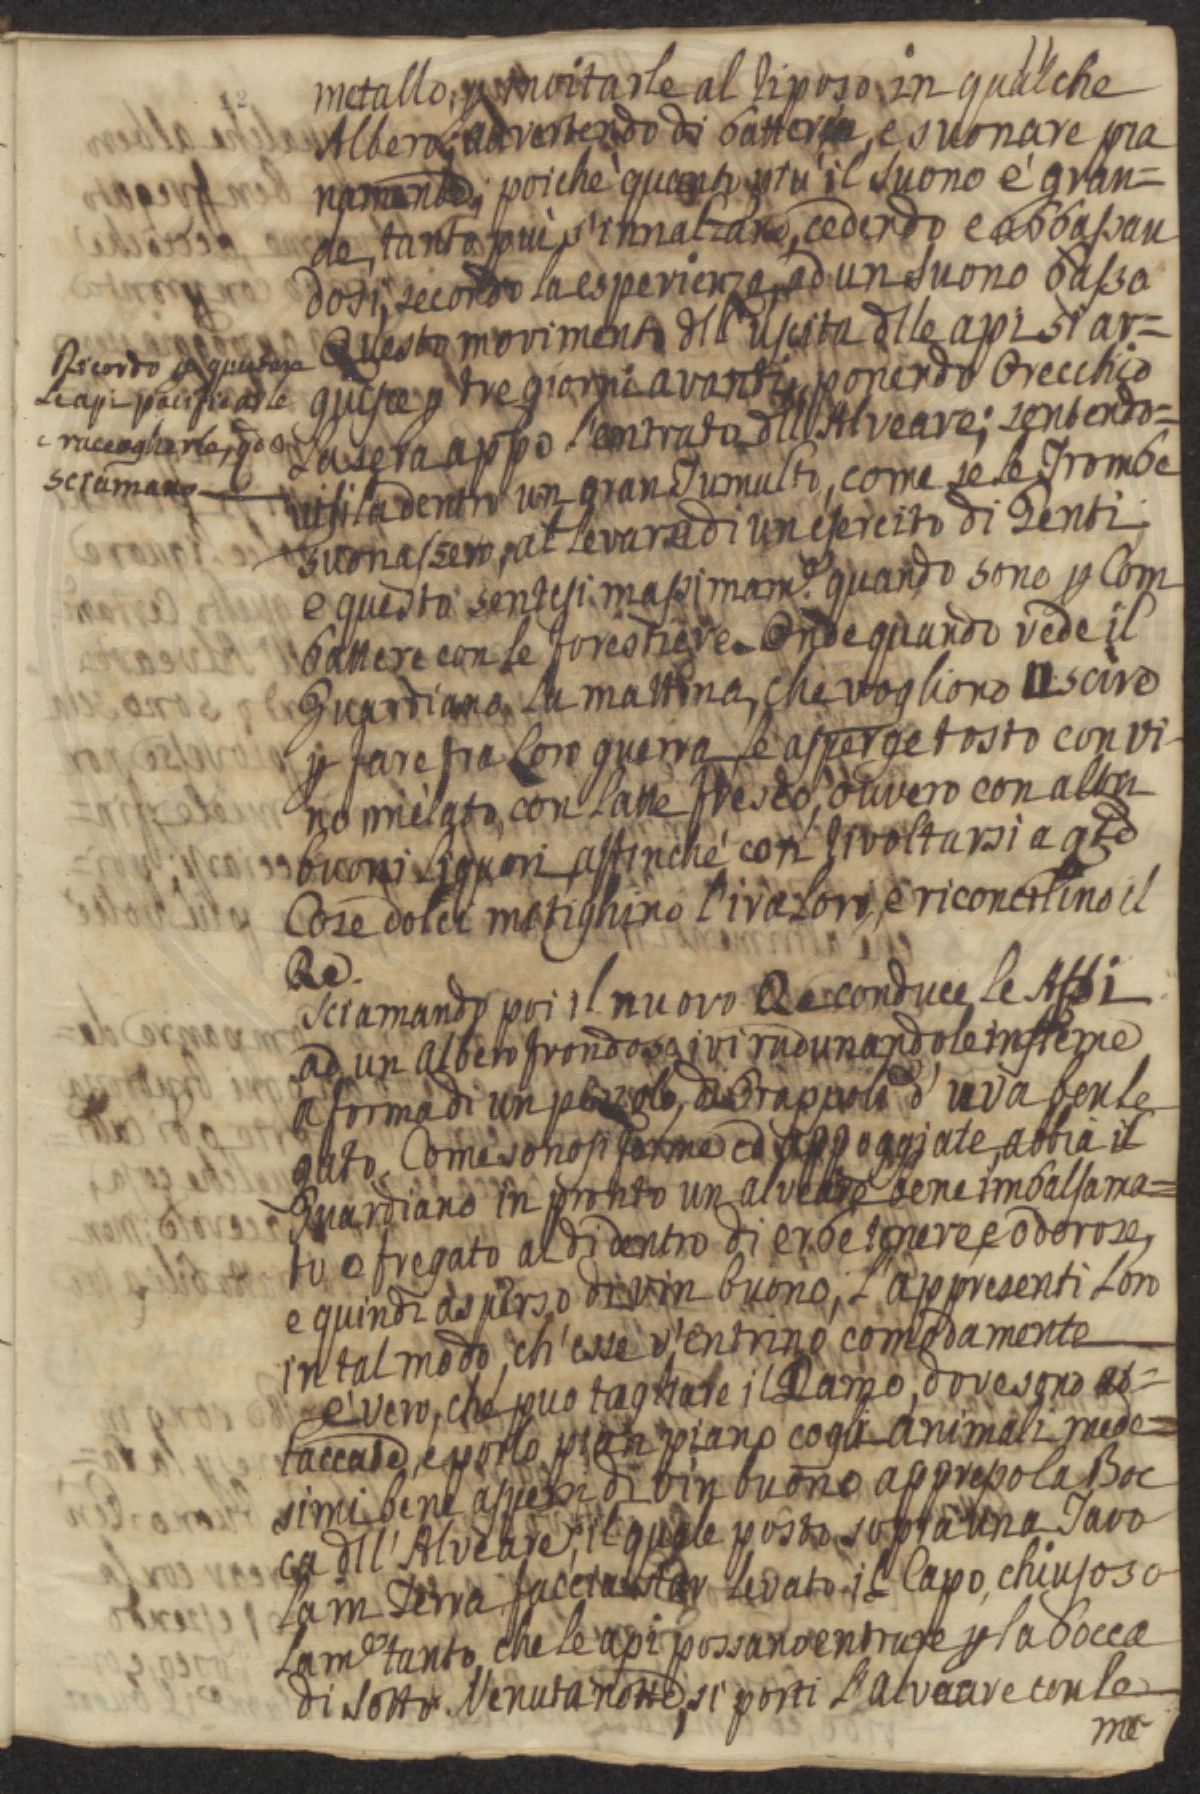 metallo, p invitarle al riposo in qualche
Albero; advertendo di batteria, e suonare pia
namente; poichè quanto più il suono è gran=
de, tanto più s'innalzano, cedendo e abbassan
dosi, secondo la esperienza, ad un suono basso
Questo movimento dll' uscita dlle api si ar=
guisce p tre giorni avanti, ponendo Orecchio
la sera appo l'entrata dll' Alveare; sentendo=
visi la dentro un gran Tumulto, come se le Trombe
suonassero, al levarse di un esercito di Genti;
e questo sentesi massimam.e quando sono p Com
battere con le forestiere. Onde quando vede il
Guardiano la mattina, che vogliono uscire
p fare fra Loro guerra, le asperge tosto con vi-
no mèlato, con latte fresco, ò uvero con altri
buoni liquori, affinchè con rivoltarsi a qte
Cose dolci mitighino l'ira loro, e riconcilino il
Re.
Sciamando poi il nuovo Re conduce le Appi
ad un albero frondoso, ivi radunandole insieme
a forma di un pezzolo, di Grappoli d' uva ben le
gato. Come sono si ferme ed appoggiate, abbia il
Guardiano in pronto un alveare bene imbalsama=
to e fregato al di dentro di erbe tenere e odorose,
e quindi asperso di vin buono, l'appresenti Loro
in tal modo, ch'esse v'entrino comodamente
è vero, che può tagliare il Ramo, dove sono at=
taccate, e porlo pian piano cogli animali mede=
simi bene aspersi di vin buono appresso la Boc
ca dll' Alveare, il quale posto sopra una Tavo
la in Terra faccia star levato il Capo, chiuso so
lam.e tanto, che le api possano entrare p la bocca
di sotto. Venuta notte, si porti l'alveare con le
me
Ricordo p quietare
le api pacificarle
e raccoglierle, qdo
sciamano